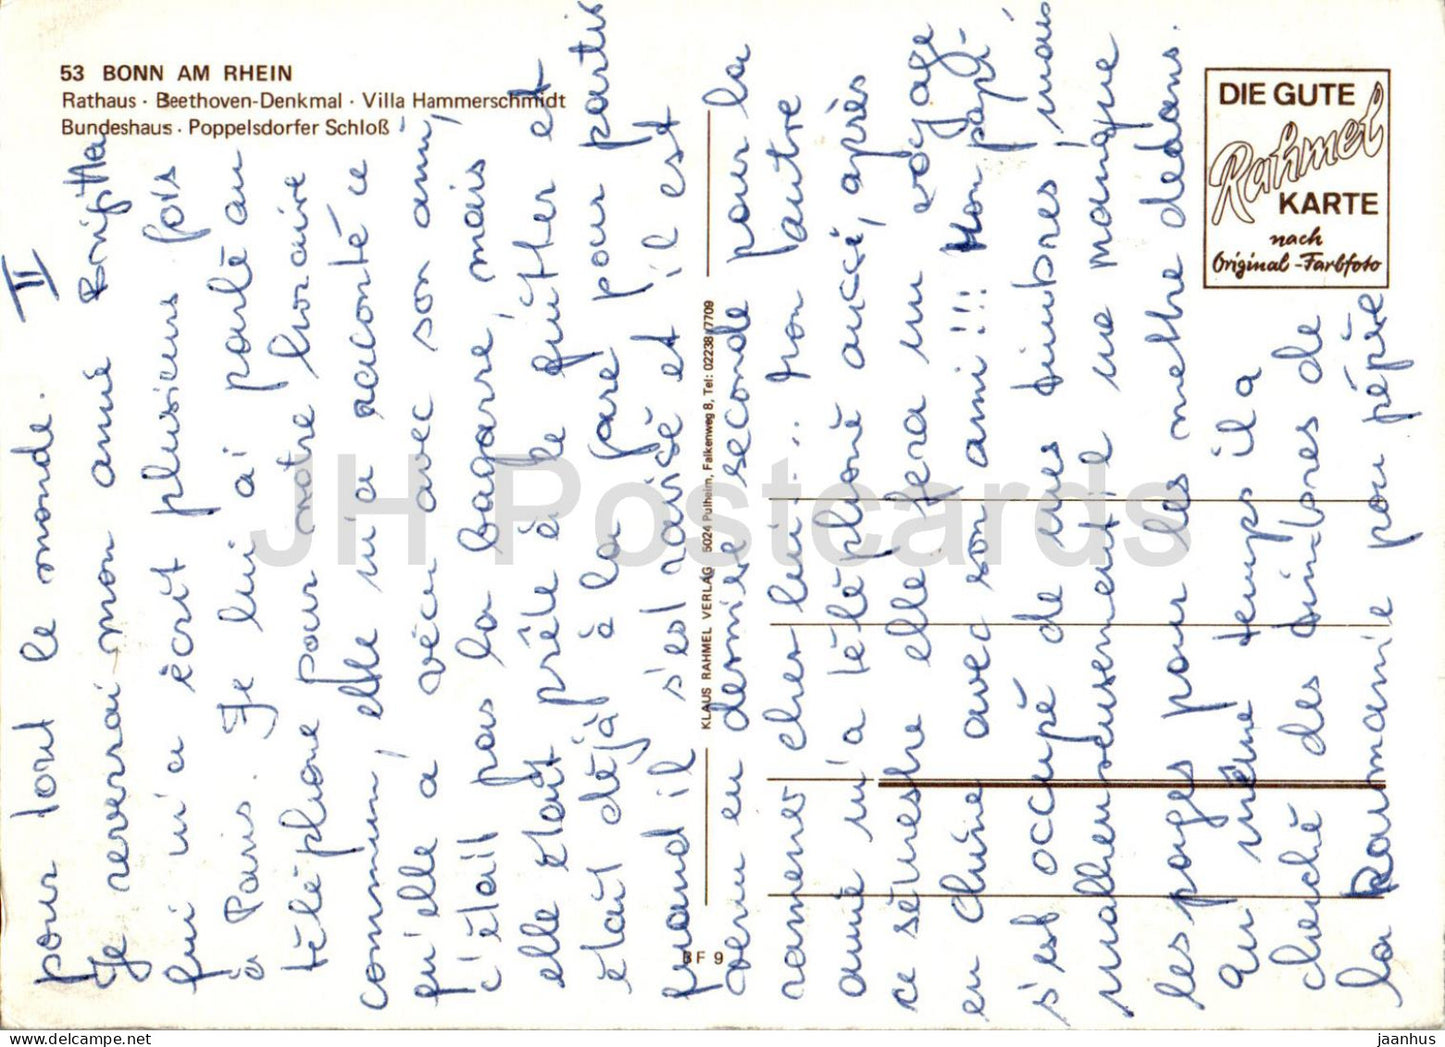 53 BONN AM RHEIN
Rathaus · Beethoven-Denkmal · Villa Hammerschmidt
Bundeshaus · Poppelsdorfer Schloß
DIE GUTE
Rahmel
KARTE
nach
Original-Farbfoto
KLAUS RAHMEL VERLAG 5024 Pulheim, Falkenweg 8, Tel: 02238/7709
BF 9
II
pour tout le monde.
Je reverrai mon amie Brigitta
qui m'a écrit plusieurs fois
à Paris. Je lui ai parlé au
téléphone pour notre horaire
commun, elle m'a raconté ce
qu'elle a vécu avec son ami,
c'était pas la bagarre, mais
elle était prête à le quitter et
était déjà à la gare pour partir
quand il s'est ravisé et il est
venu en dernière seconde pour la
ramener chez lui... Mon autre
amie m'a téléphoné aussi, après
ce semestre elle fera un voyage
en Chine avec son ami !!! Mon papi
s'est occupé de mes timbres, mais
malheureusement il me manque
les pages pour les mettre dedans.
En même temps il a
cherché des timbres de
la Roumanie pour pépère
JH Postcards
jaanhus @ delcampe.net